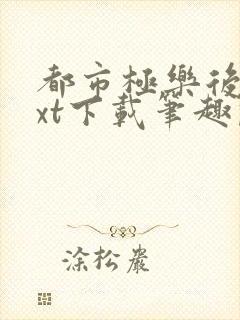 都市極樂後
xt下載筆趣
涂松巖